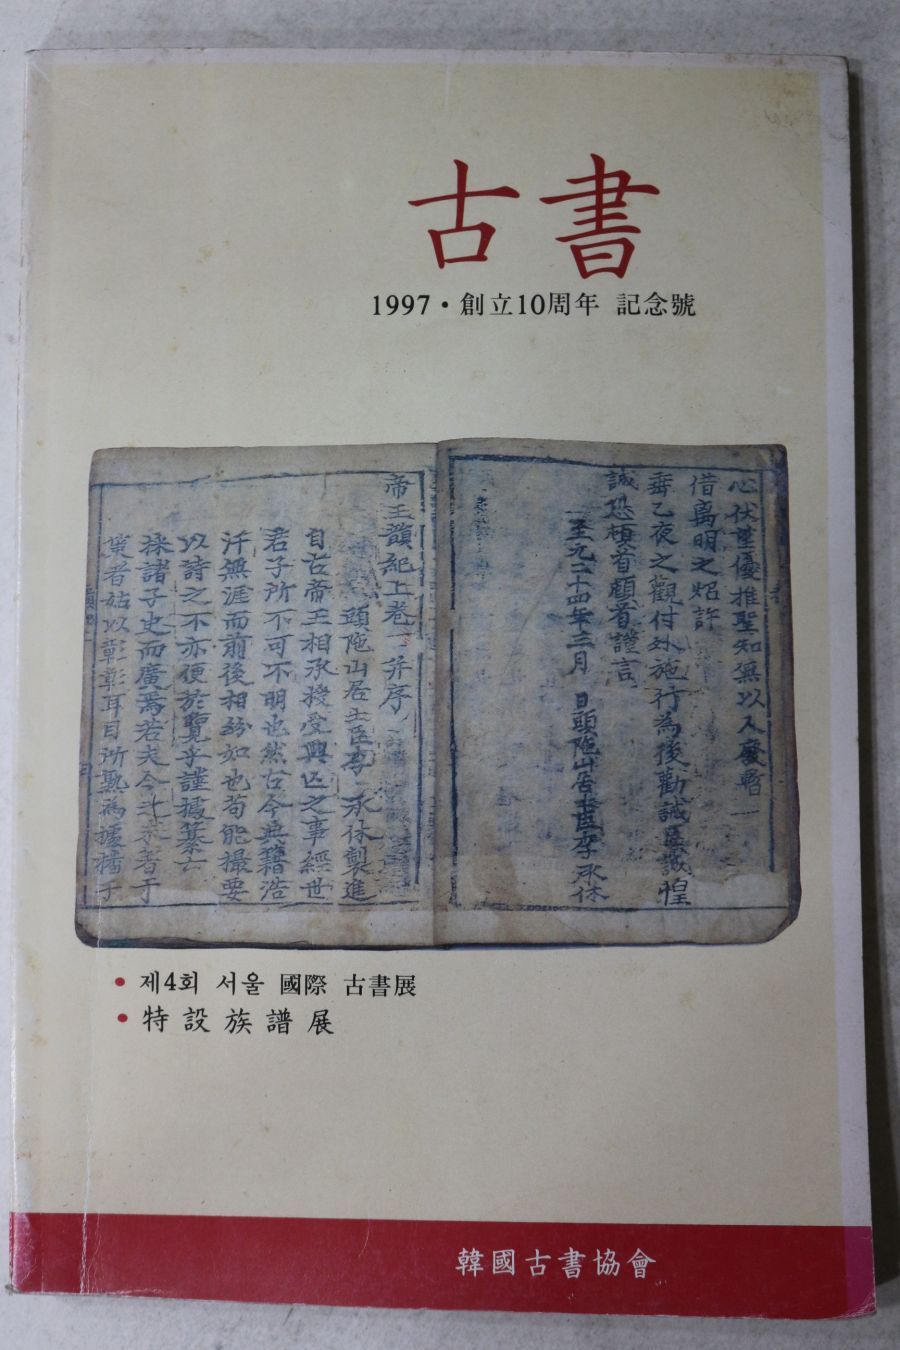 古書
1997・創立10周年 記念號
心伏望優推聖知無以人廢暫一
借离明之炤許
垂乙夜之觀付外施行為後勸誡臣誠惶
誠恐頓首頓首謹言
至元二十四年三月 日頭陁山居士臣李承休
帝王韻紀上卷 并序
頭陁山居士臣李 承休製進
自古帝王相承授受興亡之事經世
君子所不可不明也然古今典籍浩
汗無涯而前後相紛如也苟能撮要
以詩之不亦便於覽乎謹據纂古
採諸子史而廣焉若夫今
者姑以彰彰耳目所熟為據播于
• 제4회 서울 國際 古書展
• 特設族譜展
韓國古書協會